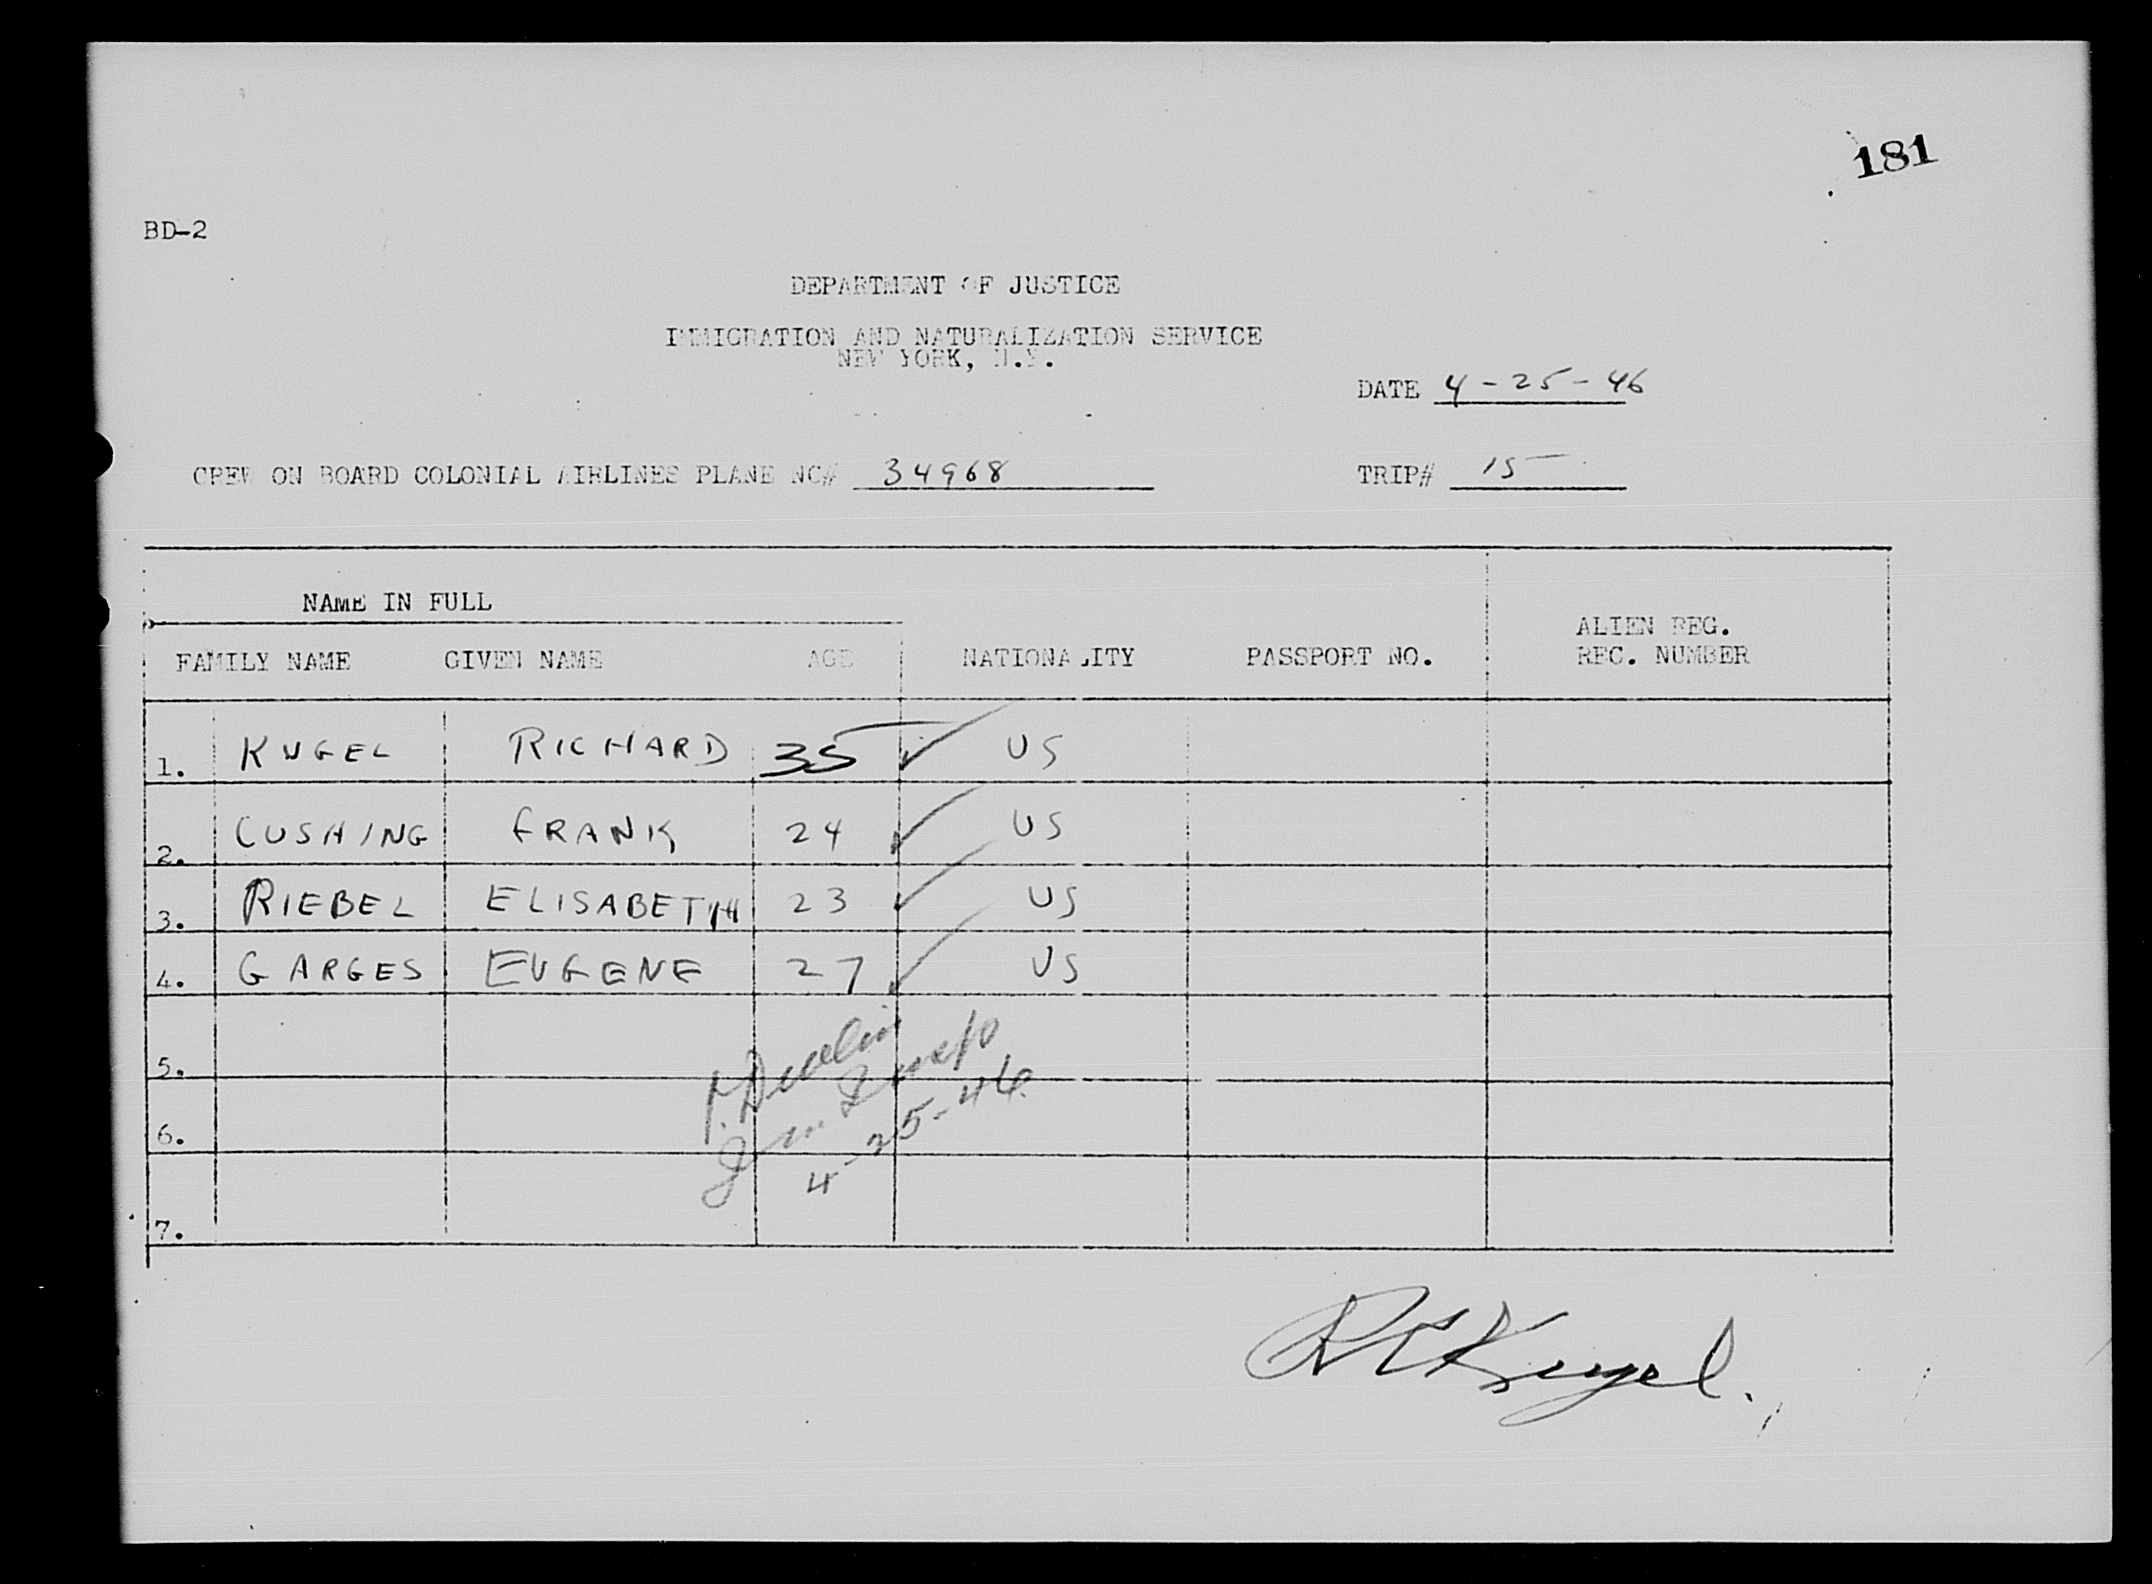 181
BD-2
DEPARTMENT OF JUSTICE
IMMIGRATION AND NATURALIZATION SERVICE
NEW YORK, N.Y.
DATE 4-25-46
CREW ON BOARD COLONIAL AIRLINES PLANE NC# 34968 TRIP# 15
NAME IN FULL
FAMILY NAME GIVEN NAME AGE NATIONALITY PASSPORT NO. ALIEN REG. REC. NUMBER
1. KUGEL RICHARD 35 ✓ US
2. CUSHING FRANK 24 ✓ US
3. RIEBEL ELISABETH 23 ✓ US
4. GARGES EUGENE 27 ✓ US
5.
6.
7.
4-25-46
Kugel